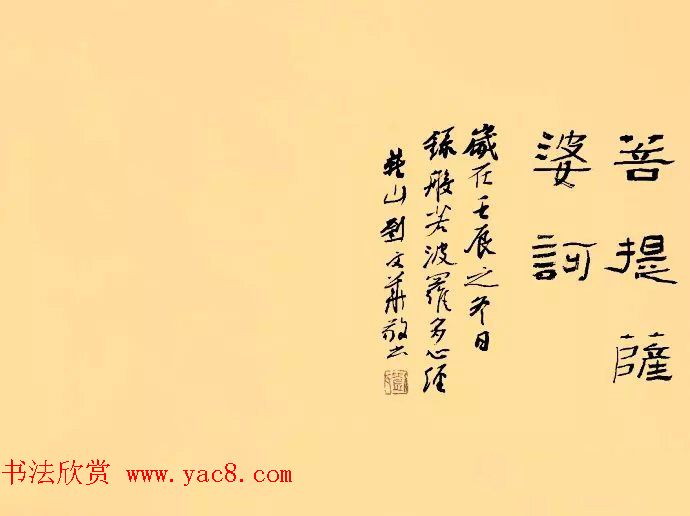 菩提薩
婆訶
歲在壬辰之冬日
錄般若波羅多心經
山劉文華敬书
书法欣赏 www.yac8.com